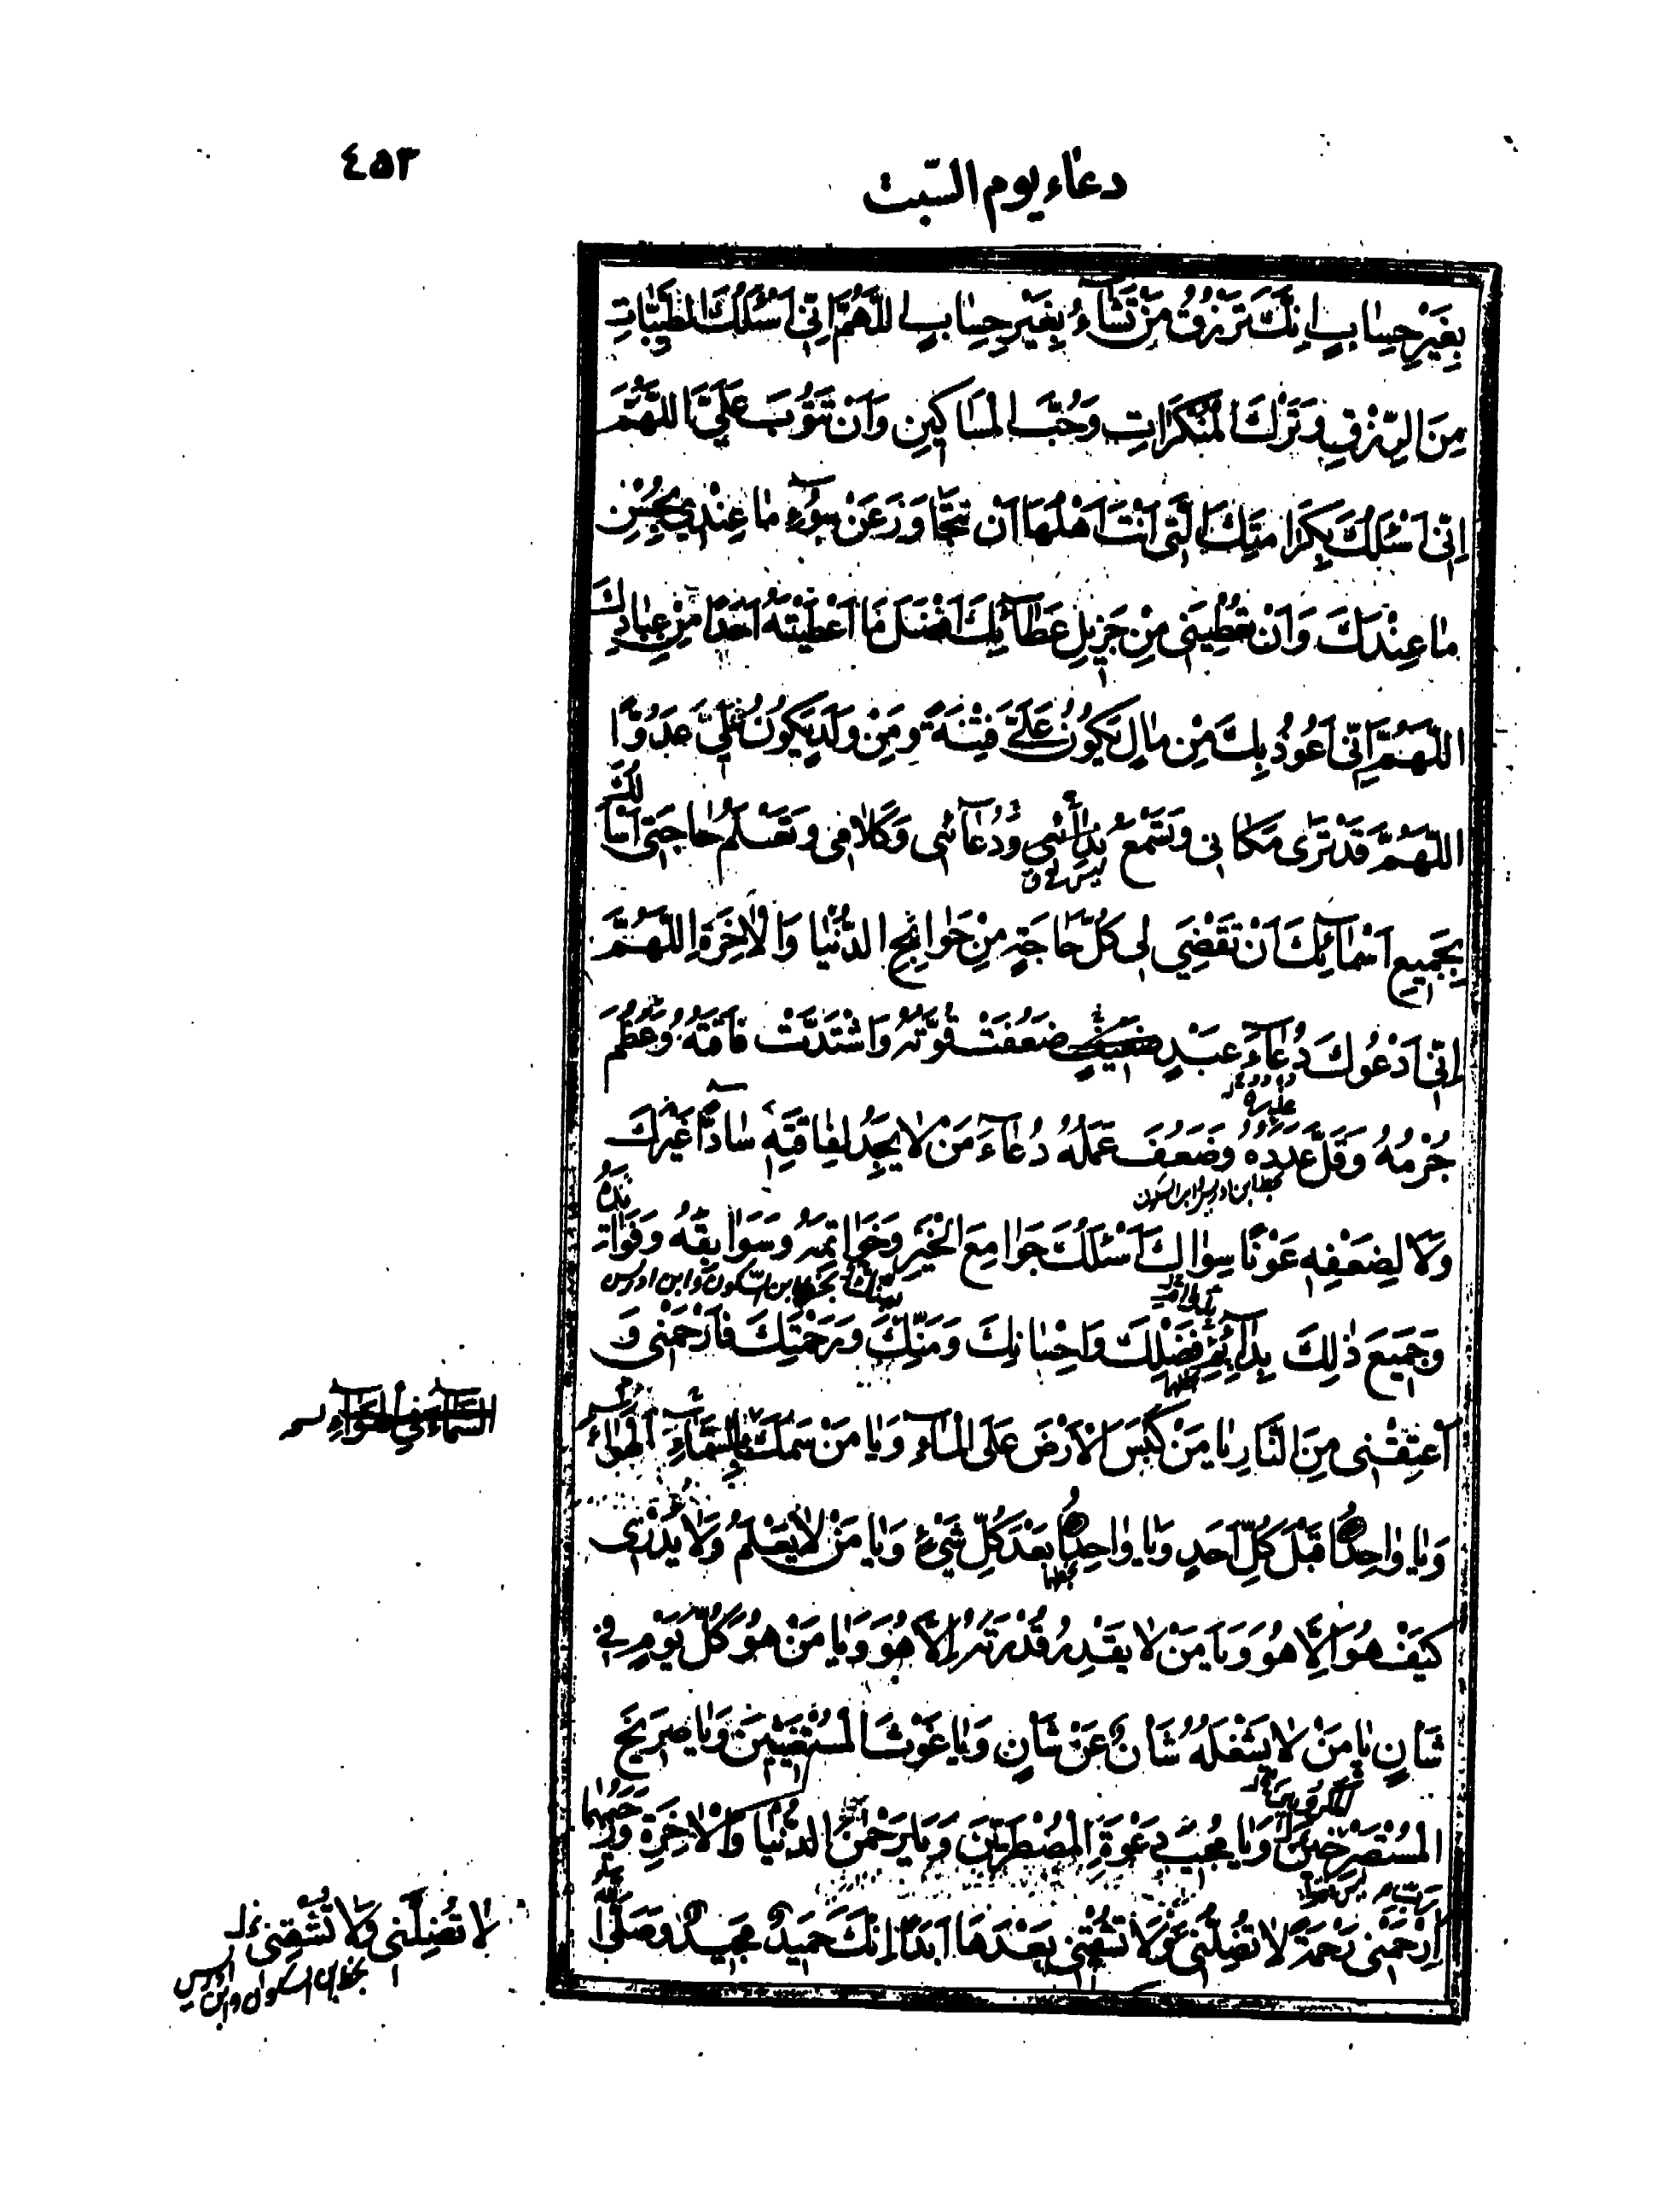 ٤٥٣
دعاء يوم السّبت
بِغَيْرِ حِسٰابٍ اِنَّكَ تَرْزُقُ مَنْ تَشٰآءُ بِغَيْرِ حِسٰابٍ اللّٰهُمَّ اِنّى اَسْئَلُكَ الطَّيِّبٰاتِ
مِنَ الرِّزْقِ وَتَرْكَ الْمُنْكَرَاتِ وَحُبَّ الْمَسَاكِينِ وَاَنْ تَتُوبَ عَلَيَّ اللّٰهُمَّ
اِنّى اَسْئَلُكَ بِكَرَامَتِكَ الَّتى اَنْتَ اَهْلُهَا اَنْ تَتَجٰاوَزَ عَنْ سُوٓءِ مٰا عِنْدي بِحُسْنِ
مٰا عِنْدَكَ وَاَنْ تُعْطِيَنى مِنْ جَزيلِ عَطٰآئِكَ اَفْضَلَ مَا اَعْطَيْتَهُ اَحَدًا مِنْ عِبٰادِكَ
اللّٰهُمَّ اِنّى اَعُوذُ بِكَ مِنْ مٰالٍ يَكُونُ عَلَىَّ فِتْنَةً وَمِنْ وَلَدٍ يَكُونُ لى عَدُوًّا
اللّٰهُمَّ قَدْ تَرٰى مَكٰانى وَتَسْمَعُ نِدٰائى وَدُعٰآئى وَكَلٰامى وَتَعْلَمُ حٰاجَتى اَسْأَلُكَ
ليس فى ق
بِجَميعِ اَسْمٰآئِكَ اَنْ تَقْضِيَ لى كُلَّ حٰاجَةٍ مِنْ حَوٰائِجِ الدُّنْيٰا وَالْاٰخِرَةِ اللّٰهُمَّ
اِنّى اَدْعُوكَ دُعٰآءَ عَبْدٍ ضَعيفٍ ضَعُفَتْ قُوَّتُهُ وَاشْتَدَّتْ فٰاقَتُهُ وَعَظُمَ
جُرْمُهُ وَقَلَّ عَدَدُهُ وَضَعُفَ عَمَلُهُ دُعٰآءَ مَنْ لٰا يَجِدُ لِفٰاقَتِهِ سٰادًّا غَيْرَكَ
بخط ابن ادريس وابن السكون
وَلَا لِضَعْفِهِ عَوْنًا سِوٰاكَ اَسْئَلُكَ جَوٰامِعَ الْخَيْرِ وَخَوٰاتِمَهُ وَسَوٰابِقَهُ وَفَوٰائِدَهُ
بخط ابن السّكون وابن ادريس
وَجَميعَ ذٰلِكَ بِدٰآئِمِ فَضْلِكَ وَاِحْسٰانِكَ وَمَنِّكَ وَرَحْمَتِكَ فَارْحَمْنى وَ
اَعْتِقْنى مِنَ النّٰارِ يٰا مَنْ كَبَسَ الْاَرْضَ عَلَى الْمٰآءِ وَيٰا مَنْ سَمَكَ السَّمٰآءَ الْهَوٰاءِ
السَّمٰآءَ فِي الْهَوٰآءِ
وَيٰا وٰاحِدًا قَبْلَ كُلِّ اَحَدٍ وَيٰا وٰاحِدًا بَعْدَ كُلِّ شَىْءٍ وَيٰا مَنْ لٰا يَعْلَمُ وَلٰا يَدْرى
كَيْفَ هُوَ اِلَّا هُوَ وَيَا مَنْ لٰا يَقْدِرُ قُدْرَتَهُ اِلَّا هُوَ وَيٰا مَنْ هُوَ كُلَّ يَوْمٍ فى
شَأْنٍ يٰا مَنْ لٰا يَشْغَلُهُ شَأْنٌ عَنْ شَأْنٍ وَيٰا غَوْثَ الْمُسْتَغيثينَ وَيٰا صَريخَ
الْمُسْتَصْرِخينَ وَيٰا مُجيبَ دَعْوَةِ الْمُضْطَرّينَ وَيٰا رَحْمٰنَ الدُّنْيٰا وَالْاٰخِرَةِ وَرَحيمَهُمٰا
رَبِّ ارْحَمْنى رَحْمَةً لٰا تُضِلُّنى وَلَا تُشْقِنى بَعْدَهَا اَبَدًا اِنَّكَ حَميدٌ مَجيدٌ وَصَلَّى اللّٰهُ
لٰا تُضِلَّنى وَلَا تُشْقِنى
بخط ابن السكون وابن ادريس